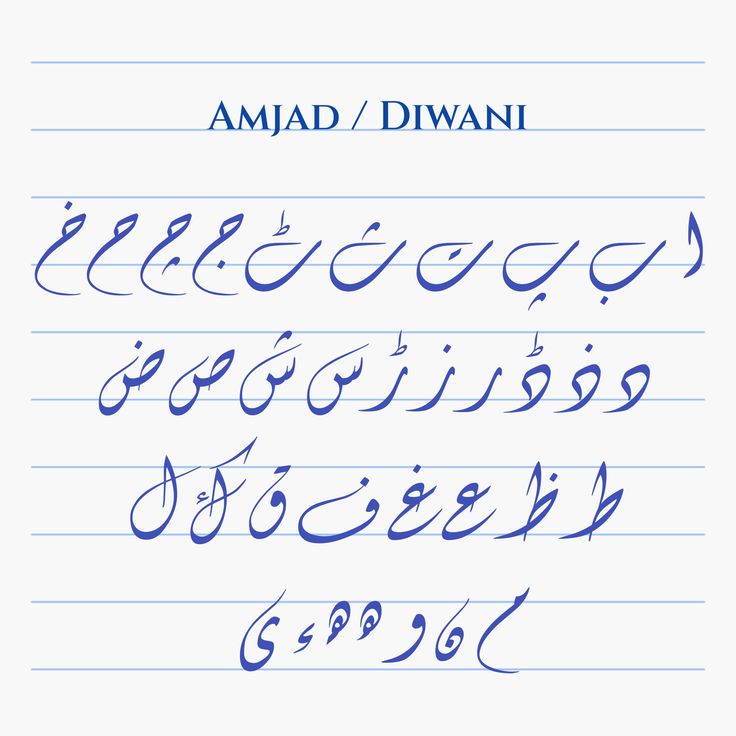 AMJAD / DIWANI
ا ب پ ت ث ٹ ج چ ح خ
د ذ ڈ ر ز ڑ س ش ص ض
ط ظ ع غ ف ق ك ل
م ن و ه ه ء ی